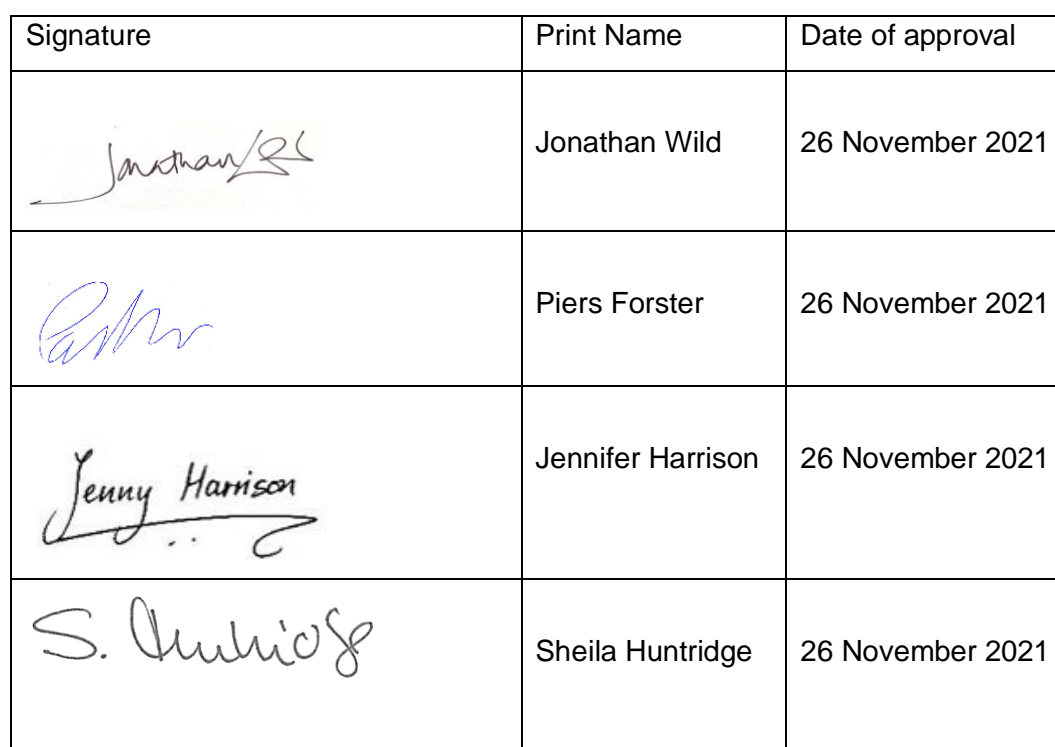 Signature Print Name Date of approval
Jonathan Jonathan Wild 26 November 2021
Piers Forster 26 November 2021
Jenny Harrison Jennifer Harrison 26 November 2021
S. Huntridge Sheila Huntridge 26 November 2021